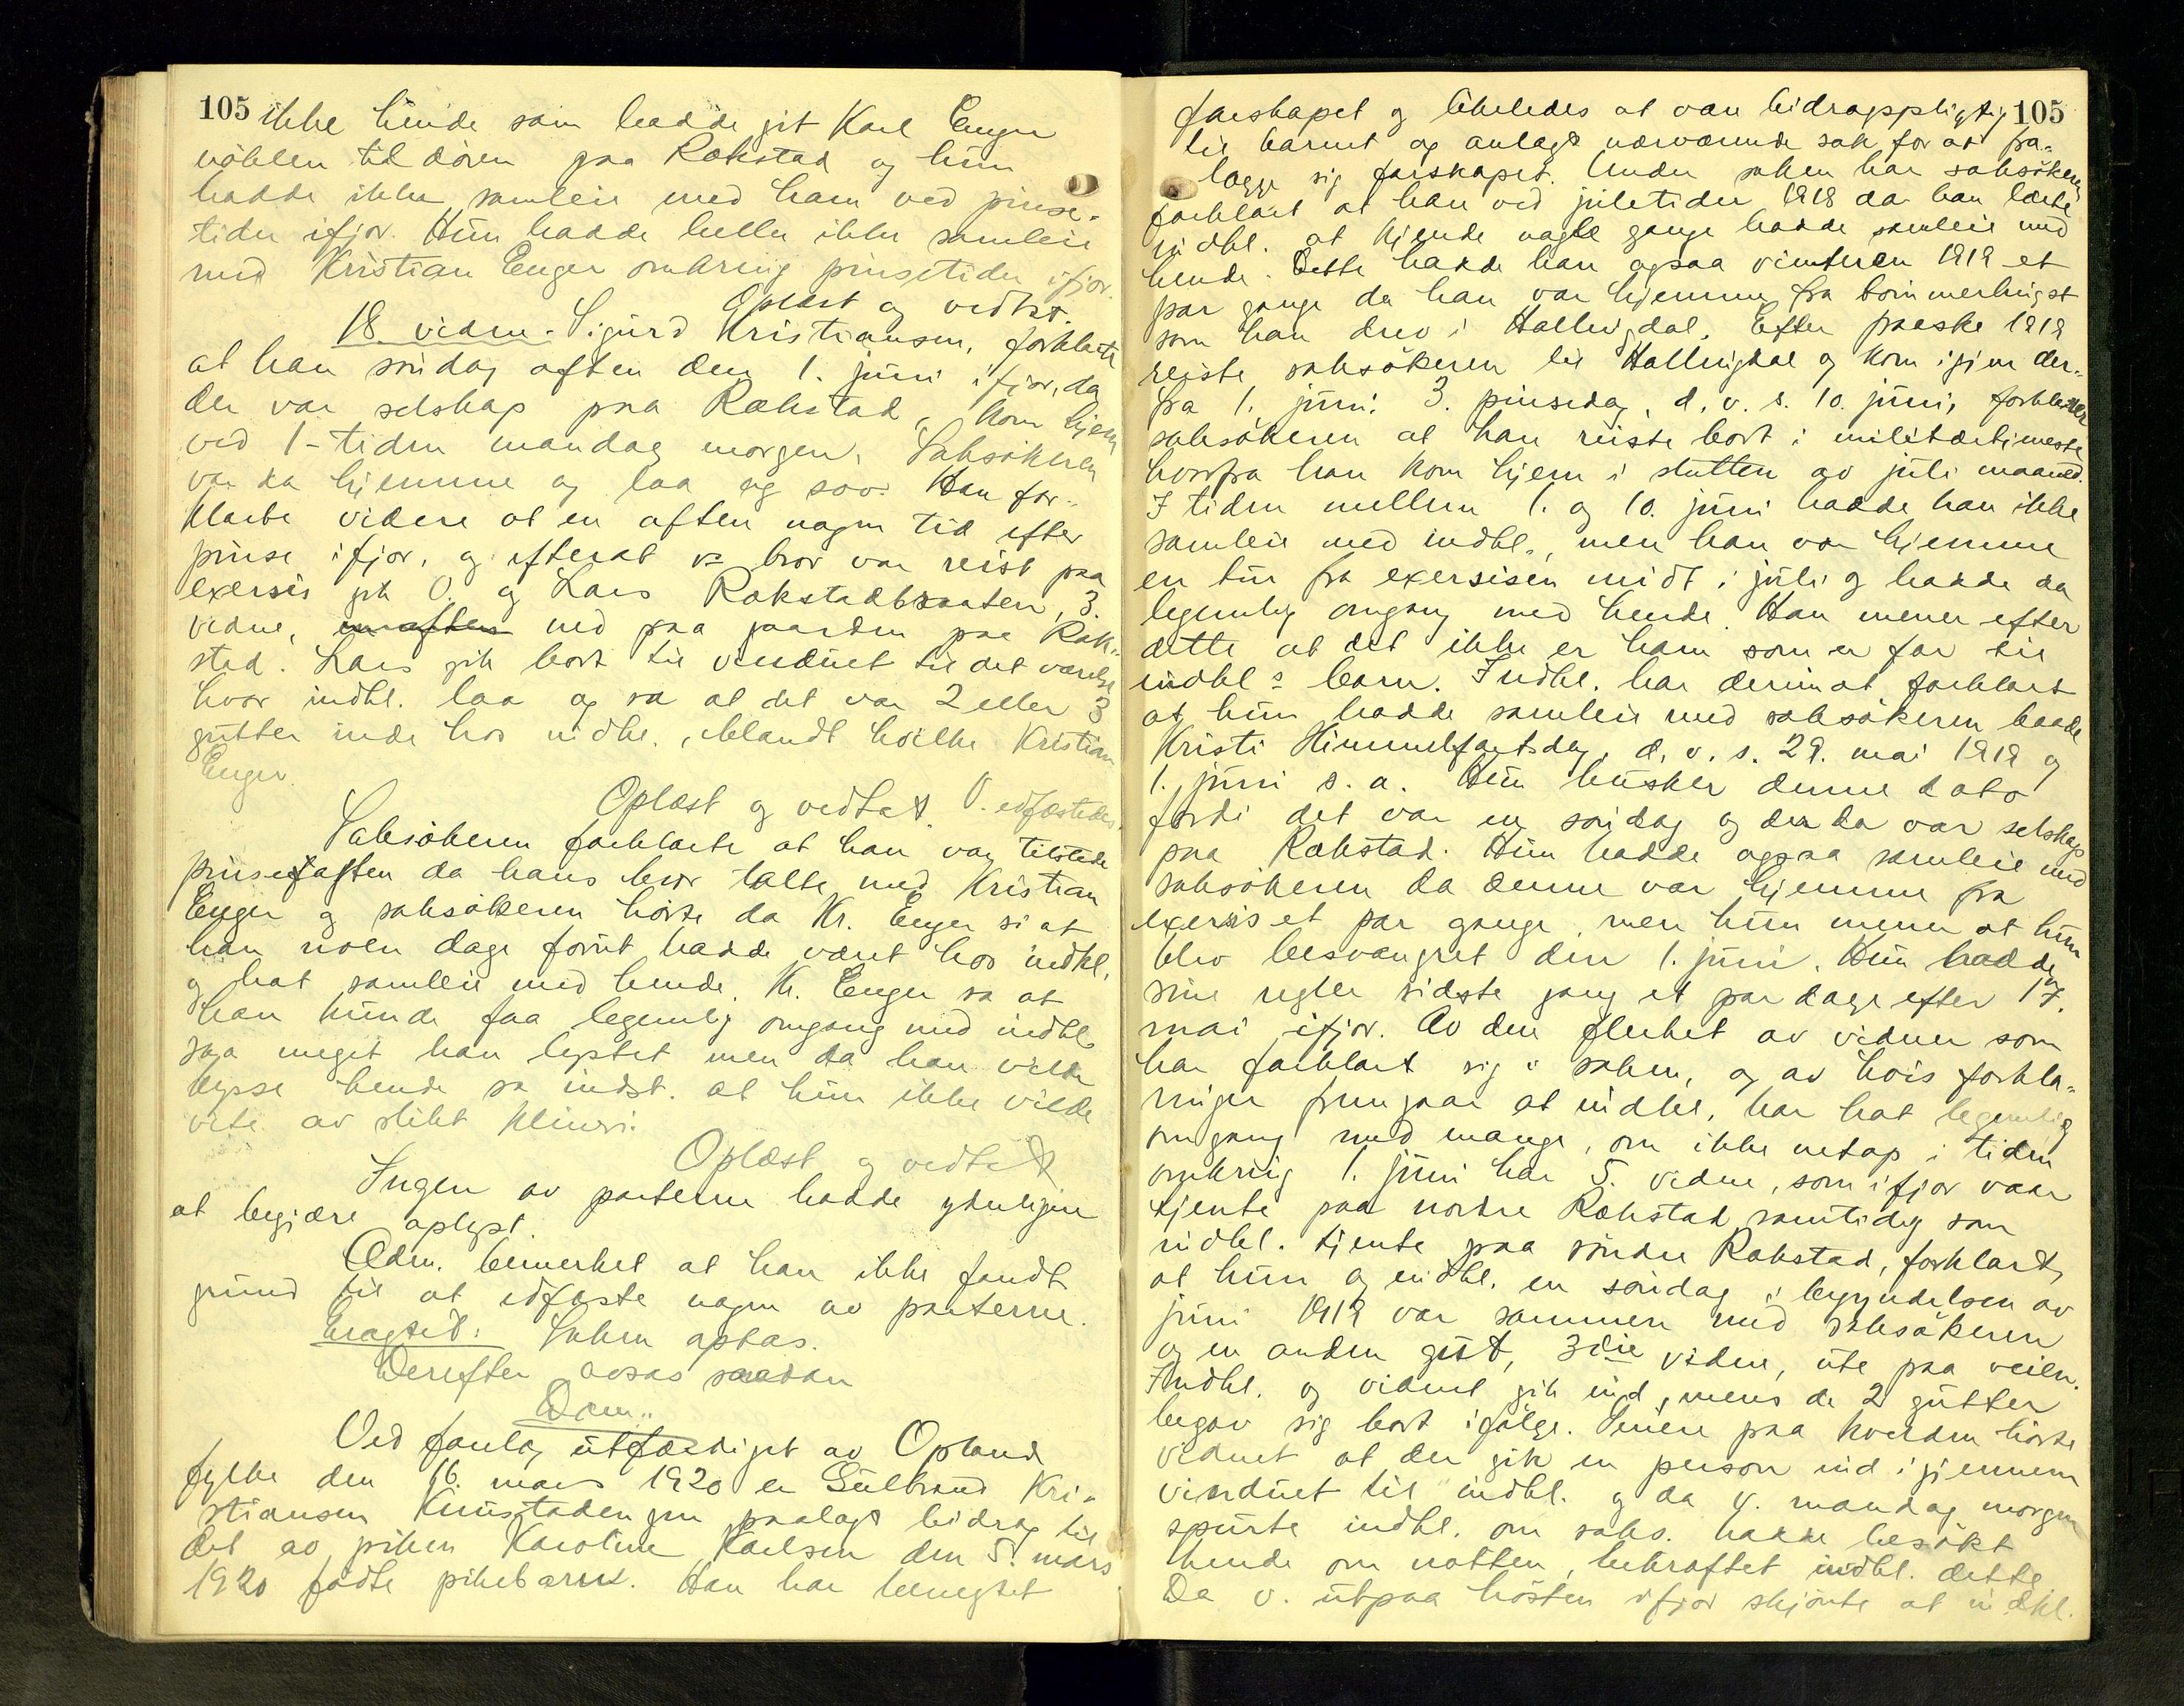 105 ikke hende som hadde git Karl Enger
nöklen til dören paa Rækstad og hun
hadde ikke samleie med ham ved pinse-
tider ifjor. Hun hadde heller ikke samleie
med Kristian Enger omkring pinsetider ifjor.
Oplæst og vedtat.
18. vidne. Sigurd Kristiansen, forklarte
at han söndag aften den 1. juni ifjor, da
der var selskap paa Rækstad, kom hjem
ved 1-tiden mandag morgen. Saksökeren
var da hjemme og laa og sov. Han for-
klarte videre at en aften nogen tid efter
pinse ifjor, og efterat vs bror var reist paa
exersis gik V. og Lars Rækstadbraaten, 3.
vidne, en aften ned paa gaarden paa Ræk-
stad. Lars gik bort til vinduet til det værelse
hvor indkl. laa og sa at det var 2 eller 3
gutter inde hos indkl., iblandt hvilke Kristian
Enger.
Oplæst og vedtat. V. edfæstedes.
Saksökeren forklarte at han var tilstede
pinseaften da hans bror talte med Kristian
Enger og saksökeren hörte da Kr. Enger si at
han noen dage forut hadde været hos indkl.
og hat samleie med hende. Kr. Enger sa at
han kunde faa legemlig omgang med indkl.
saa meget han lystet men da han vilde
kysse hende sa indst. at hun ikke vilde
vite av slikt klineri.
Oplæst og vedtat
Ingen av parterne hadde yderligere
at begjære oplyst.
Adm. bemerket at han ikke fandt
grund til at edfæste nogen av parterne.
Eragtet: Saken optas.
Derefter avsas saadan
Dom:
Ved forelæg utfærdiget av Opland
fylke den 16. mars 1920 er Gulbrand Kri-
stiansen Knustadengen paalagt bidrag til
det av piken Karoline Karlsen den 5. mars
1920 födte pikebarn. Han har benegtet
farskapet og likeledes at være bidragspligtig 105
til barnet og anlagt nærværende sak for at fra-
lægge sig farskapet. Under saken har saksökeren
forklart at han ved juletider 1918 da han lærte
indkl. at kjende nogle gange hadde samleie med
hende. Dette hadde han ogsaa vinteren 1919 et
par gange da han var hjemme fra tömmerhugst
som han drev i Hallingdal. Efter paaske 1919
reiste saksökeren til Hallingdal og kom igjen der-
fra 1. juni. 3. pinsedag, d. v. s. 10. juni, forklarer
saksökeren at han reiste bort i militærtjeneste
hvorfra han kom hjem i slutten av juli maaned.
I tiden mellem 1. og 10. juni hadde han ikke
samleie med indkl., men han var hjemme
en tur fra exersisen midt i juli og hadde da
legemlig omgang med hende. Han mener efter
dette at det ikke er ham som er far til
indkl s barn. Indkl. har derimot forklart
at hun hadde samleie med saksökeren baade
Kristi Himmelfartsdag, d. v. s. 29. mai 1919 og
1. juni s. a. Hun husker denne dato
fordi det var en söndag og der da var selskap
paa Rækstad. Hun hadde ogsaa samleie med
saksökeren da denne var hjemme fra
exersis et par gange, men hun mener at hun
blev besvangret den 1. juni. Hun hadde
sine regler sidste gang et par dage efter 17.
mai ifjor. Av den flerhet av vidner som
har forklart sig i saken, og av hvis forkla-
ringer fremgaar at indkl. har hat legemlig
omgang med mange, om ikke netop i tiden
omkring 1. juni har 5. vidne, som ifjor vaar
tjente paa nordre Rækstad samtidig som
indkl. tjente paa söndre Rækstad, forklart,
at hun og indkl. en söndag i begyndelsen av
juni 1919 var sammen med saksökeren
og en anden gut, 3die vidne, ute paa veien.
Indkl. og vidnet gik ind, mens de 2 gutter
begav sig bort ifölge. Senere paa kvelden hörte
vidnet at der gik en person ind igjennem
vinduet til indkl. og da v. mandag morgen
spurte indkl. om saks. hadde besökt
hende om natten, bekræftet indkl. dette.
Da v. utpaa hösten ifjor skjönte at indkl.